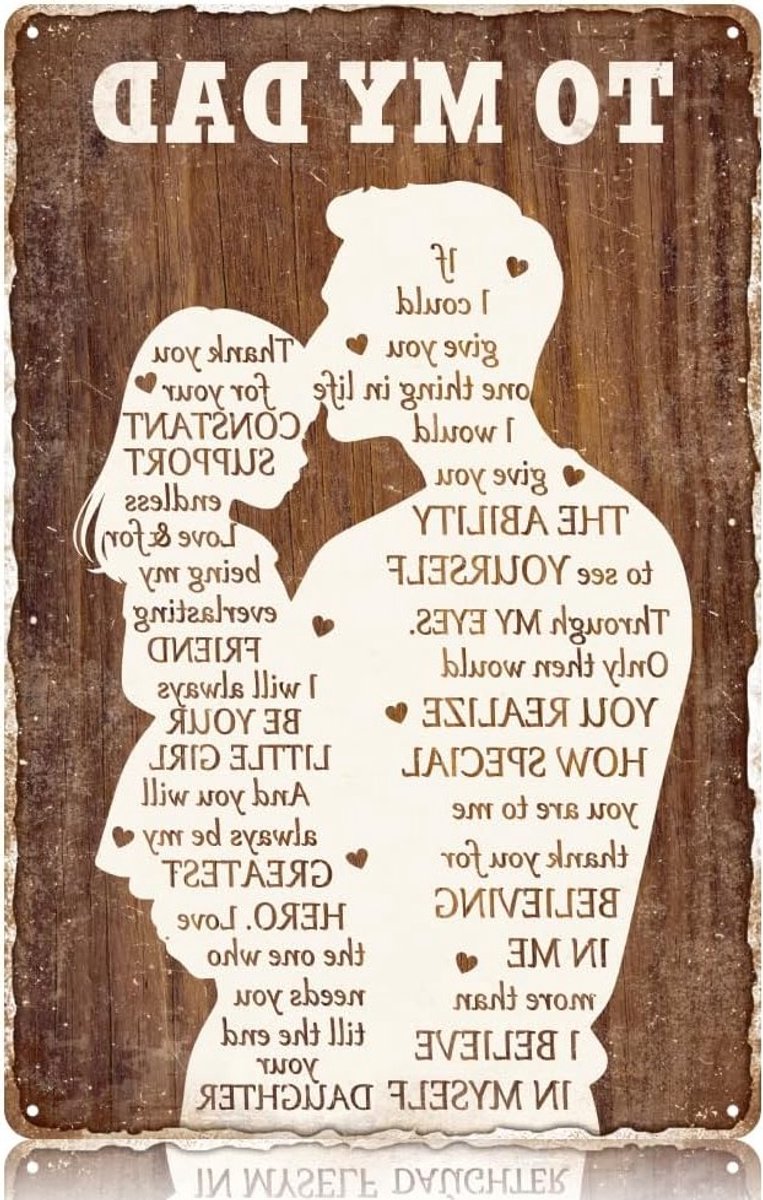 TO MY DAD
If
I could
give you
one thing in life
I would
give you
THE ABILITY
to see YOURSELF
Through MY EYES.
Only then would
YOU REALIZE
HOW SPECIAL
you are to me
thank you for
BELIEVING
IN ME
more than
I BELIEVE
IN MYSELF
Thank you
for your
CONSTANT
SUPPORT
endless
Love & for
being my
everlasting
FRIEND
I will always
BE YOUR
LITTLE GIRL
And you will
always be my
GREATEST
HERO. Love
the one who
needs you
till the end
your
DAUGHTER
IN MYSELF DAUGHTER